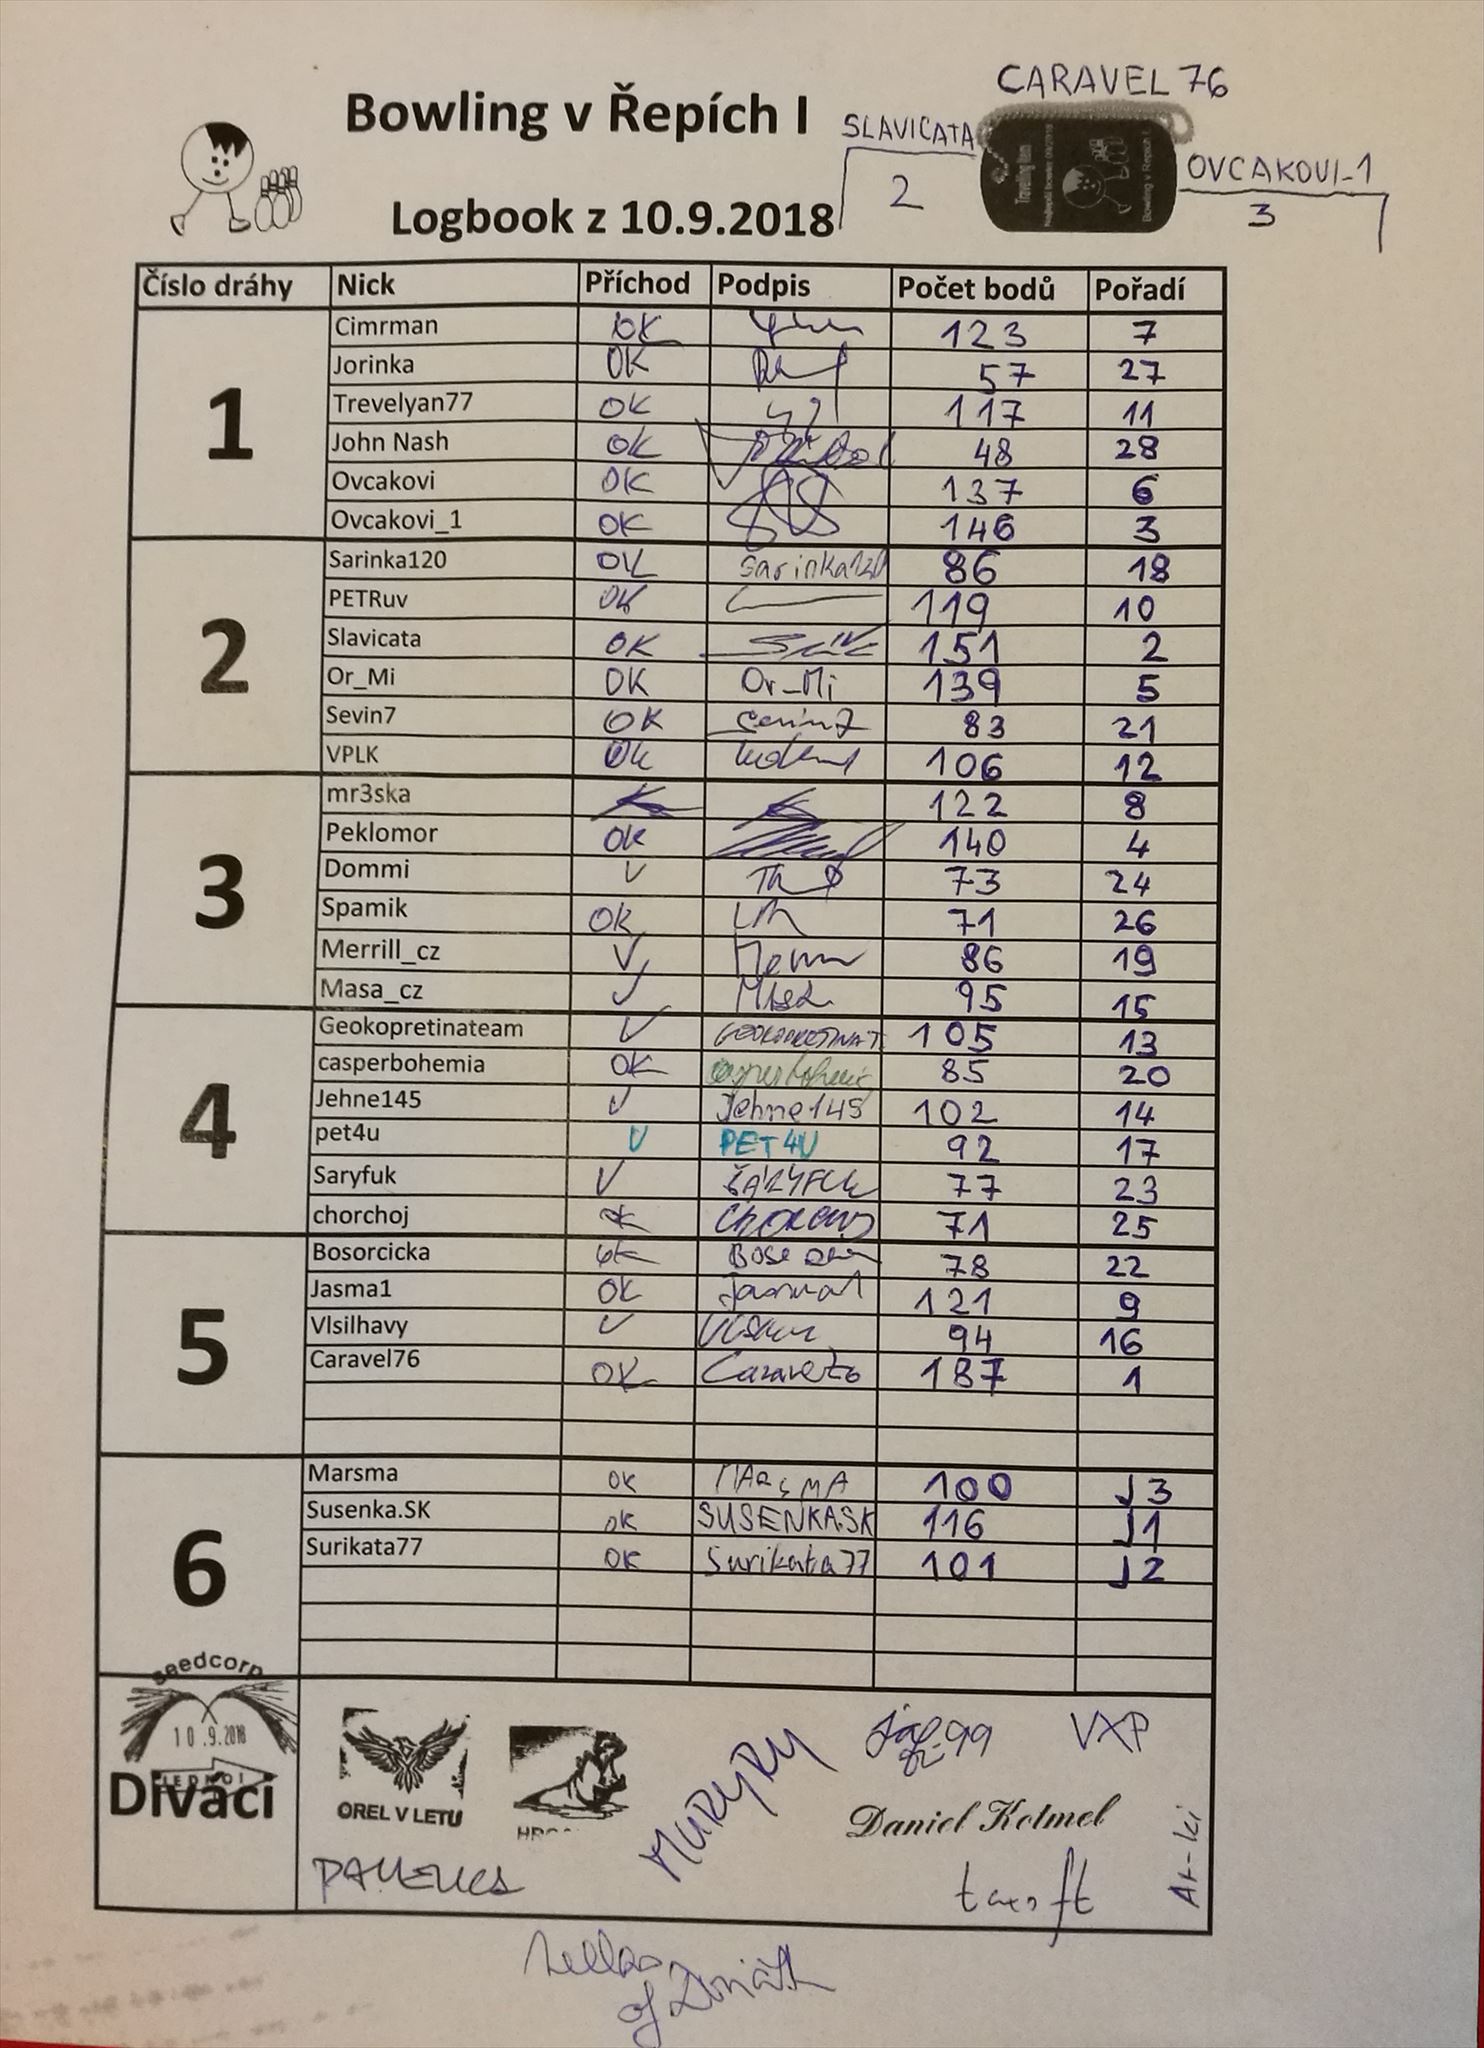 CARAVEL 76
Bowling v Řepích I
SLAVICATA
2
OVCAKOVI_1
3
Traveling item
Bowling v Řepích I
Logbook z 10.9.2018
Číslo dráhy Nick Příchod Podpis Počet bodů Pořadí
1
Cimrman OK 123 7
Jorinka OK 57 27
Trevelyan77 OK 117 11
John Nash OK 48 28
Ovcakovi OK 137 6
Ovcakovi_1 OK 146 3
2
Sarinka120 OK Sarinka120 86 18
PETRuv OK 119 10
Slavicata OK 151 2
Or_Mi OK Or_Mi 139 5
Sevin7 OK Sevin7 83 21
VPLK OK 106 12
3
mr3ska 122 8
Peklomor OK 140 4
Dommi 73 24
Spamik OK 71 26
Merrill_cz 86 19
Masa_cz 95 15
4
Geokopretinateam GEOKOPRETINAT 105 13
casperbohemia OK casperbohemia 85 20
Jehne145 Jehne145 102 14
pet4u PET4U 92 17
Saryfuk ŠARYFUK 77 23
chorchoj OK 71 25
5
Bosorcicka OK 78 22
Jasma1 OK Jasma1 121 9
Vlsilhavy 94 16
Caravel76 OK Caravel76 187 1
6
Marsma OK MARSMA 100 J3
Susenka.SK OK SUSENKA.SK 116 J1
Surikata77 OK Surikata77 101 J2
Diváci
seedcorp
10.9.2018
OREL V LETU
MURYRY
VXP
Daniel Kotmel
Ar-ki